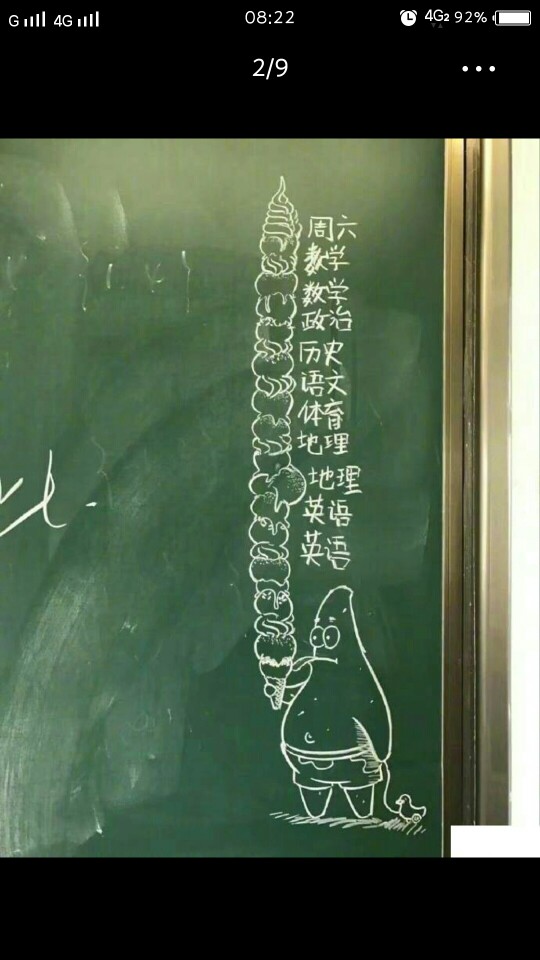 G 4G 08:22 4G2 92%
2/9
周六
数学
数学
政治
历史
语文
体育
地理
地理
英语
英语